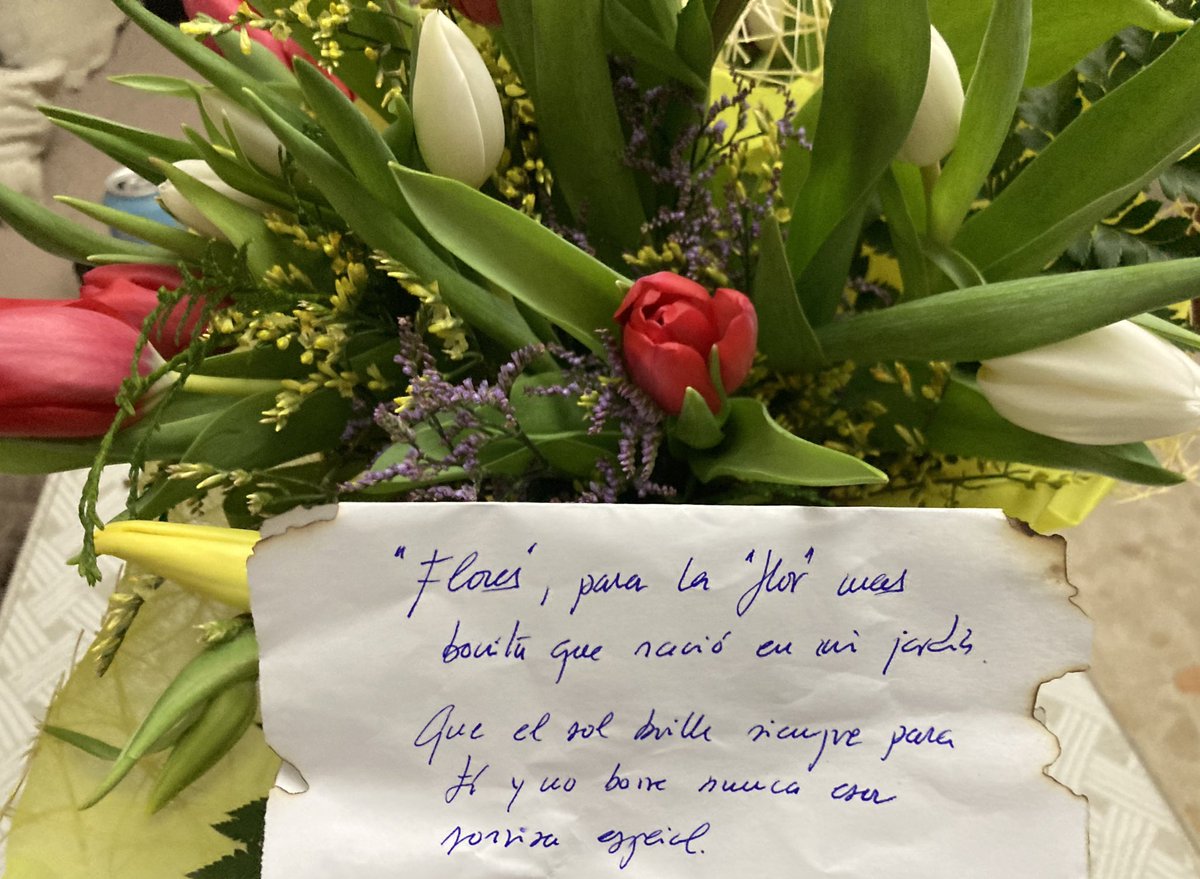 "Flores", para la "flor" mas
bonita que nació en mi jardín.
Que el sol brille siempre para
tí y no borre nunca esa
sonrisa especial.